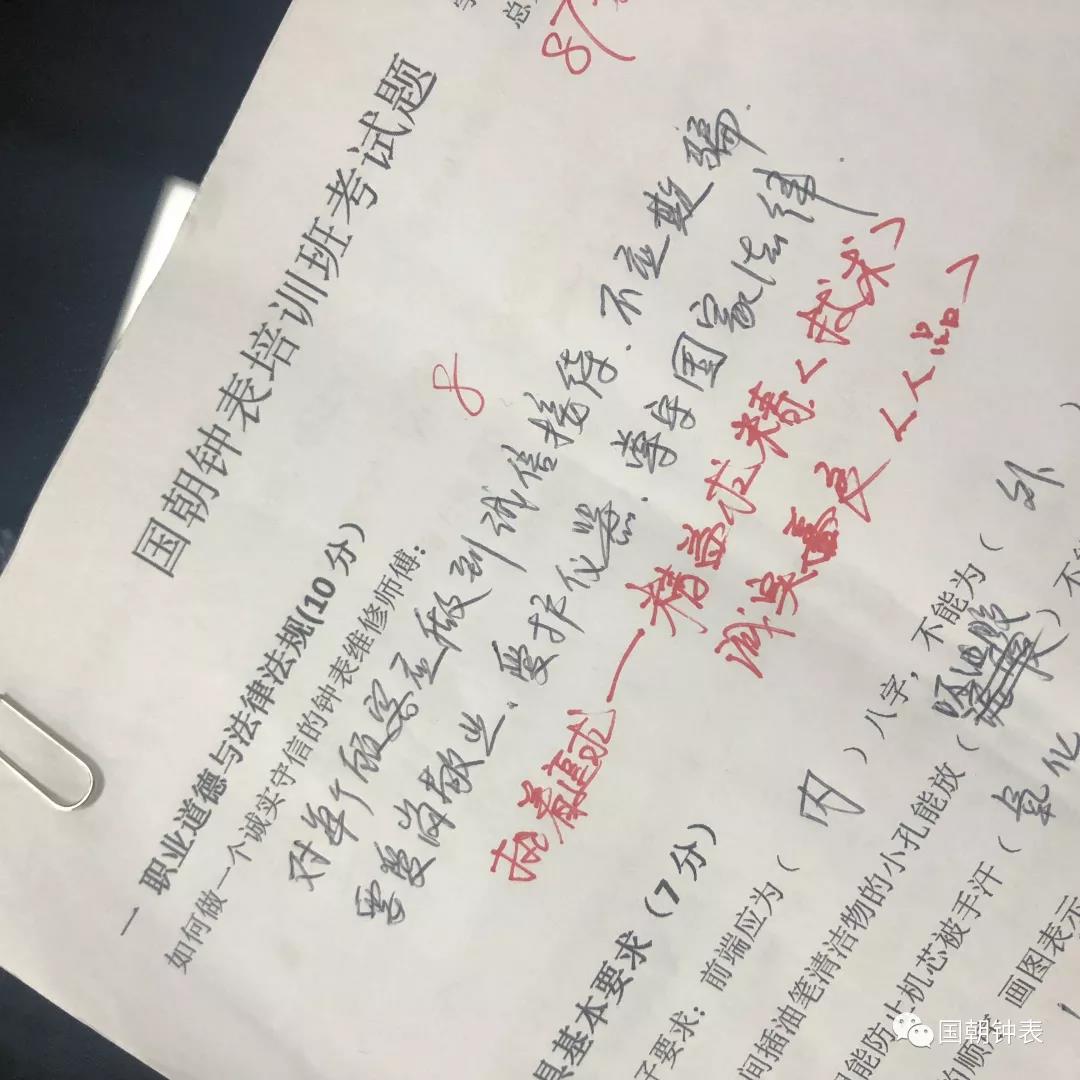 总
87
国朝钟表培训班考试题
8
一 职业道德与法律法规(10分)
如何做一个诚实守信的钟表维修师傅:
对每个顾客应做到诚信接待.不应欺骗.
要爱岗敬业.爱护仪器.遵守国家法律
精益求精<技术>
<人品>
具基本要求(7分)
子要求:前端应为( 内 )八字,不能为( 外 )
间插油笔清洁物的小孔能放(
能防止机芯被手汗( 氧化
的顺序 画图表示
国朝钟表